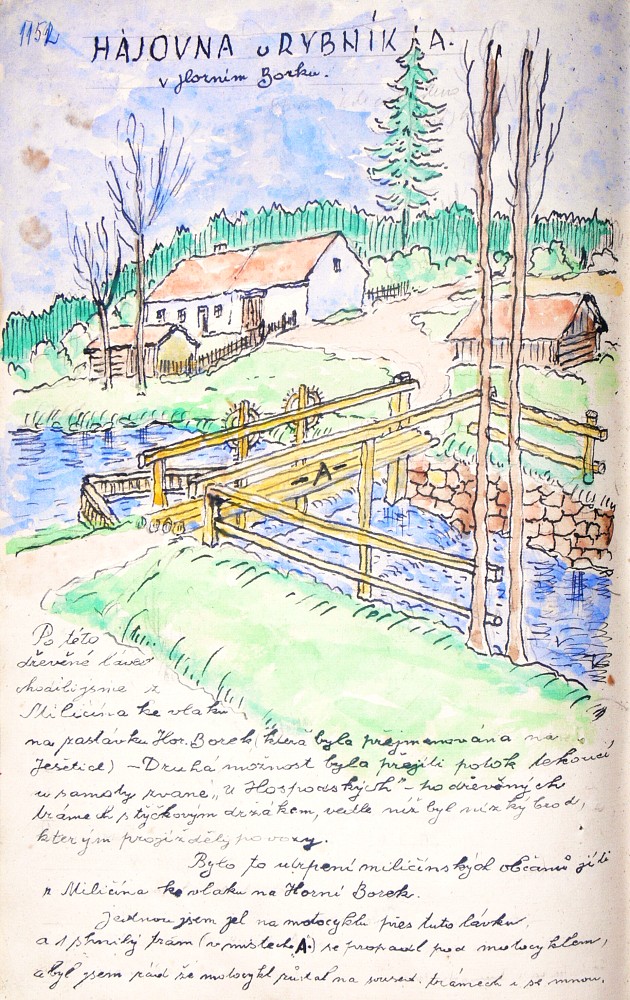 1152
HÁJOVNA u RYBNÍKA.
v Horním Borku.
-A-
Po této
dřevěné lávce
chodili jsme z
Miličína ke vlaku
na zastávku Hor. Borek (která byla přejmenována na
Ješetice) - Druhá možnost byla přejíti potok tekoucí
u samoty zvané „U Hospodských" - po dřevěných
trámech s tyčkovým držákem, vedle níž byl nízký brod,
kterým projížděly povozy.
Bylo to utrpení miličínských občanů jíti
z Miličína ke vlaku na Horní Borek.
Jednou jsem jel na motocyklu přes tuto lávku,
a 1 shnilý trám (v místech A.) se propadl pod motocyklem,
a byl jsem rád že motocykl zůstal na soused. trámech i se mnou.